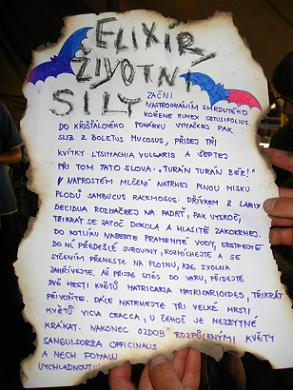 ELIXÍR
ŽIVOTNÍ
SÍLY
ZAČNI
NASTROUHÁNÍM SMRDUTÉHO
KOŘENE RUMEX OBTUSIFOLIUS.
DO KŘIŠŤÁLOVÉHO POHÁRKU VYMAČKEJ PAK
SLIZ Z BOLETUS MUCOSUS, PŘIDEJ TŘI
KVÍTKY LYSIMACHIA VULGARIS A ŠEPTEJ
PŘI TOM TATO SLOVA: „TURAIN TURAN BEŘ!"
V NAPROSTÉM MLČENÍ NATRHEJ PLNOU MISKU
PLODŮ SAMBUCUS RACEMOSUS. DŘÍVKEM Z LARIX
DECIDUA ROZMAČKEJ NA PADRŤ, PAK VYSKOČ,
TŘIKRÁT SE ZATOČ DOKOLA A HLASITĚ ZAKOKRHEJ.
DO KOTLÍKU NABERTE PRAMENITÉ VODY,
DO NÍ PŘEDEŠLÉ SUROVINY, ROZMÍCHEJTE A SE
SYČENÍM PŘENESTE NA PLOTNU, KDE ZVOLNA
ZAHŘÍVEJTE. AŽ PŘIJDE STŮS DO VARU, PŘIDEJTE
DVĚ HRSTI KVĚTŮ MATRICARIA MATRICARIOIDES, TŘIKRÁT
PŘIVOŇTE. DÁLE NATRHEJTE TŘI VELKÉ HRSTI
KVĚTŮ VICIA CRACCA, U ČEHOŽ JE NEZBYTNÉ
KRÁKAT. NAKONEC OZDOB ROZPŮLENÝMI KVĚTY
SANGUISORBA OFFICINALIS
A NECH POMALU
VYCHLADNOUT...